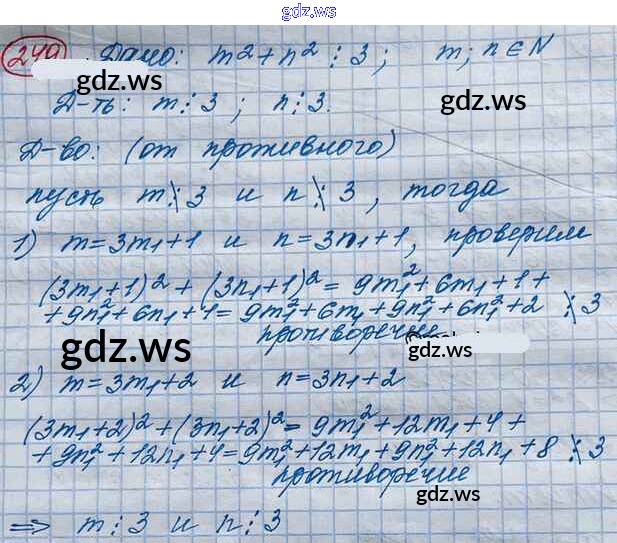 gdz.ws
249 Дано: m² + n² ⋮ 3 ; m; n ∈ N
gdz.ws
Д-ть: m ⋮ 3 ; n ⋮ 3.
gdz.ws
Д-во: (от противного)
пусть m ⋮̸ 3 и n ⋮̸ 3 , тогда
1) m = 3m₁ + 1 и n = 3n₁ + 1, проверим
(3m₁+1)² + (3n₁+1)² = 9m₁² + 6m₁ + 1 +
+ 9n₁² + 6n₁ + 1 = 9m₁² + 6m₁ + 9n₁² + 6n₁² + 2 ⋮̸ 3
противоречие
gdz.ws
gdz.ws
2) m = 3m₁ + 2 и n = 3n₁ + 2
(3m₁+2)² + (3n₁+2)² = 9m₁² + 12m₁ + 4 +
+ 9n₁² + 12n₁ + 4 = 9m₁² + 12m₁ + 9n₁² + 12n₁ + 8 ⋮̸ 3
противоречие
gdz.ws
⇒ m ⋮ 3 и n ⋮ 3
gdz.ws